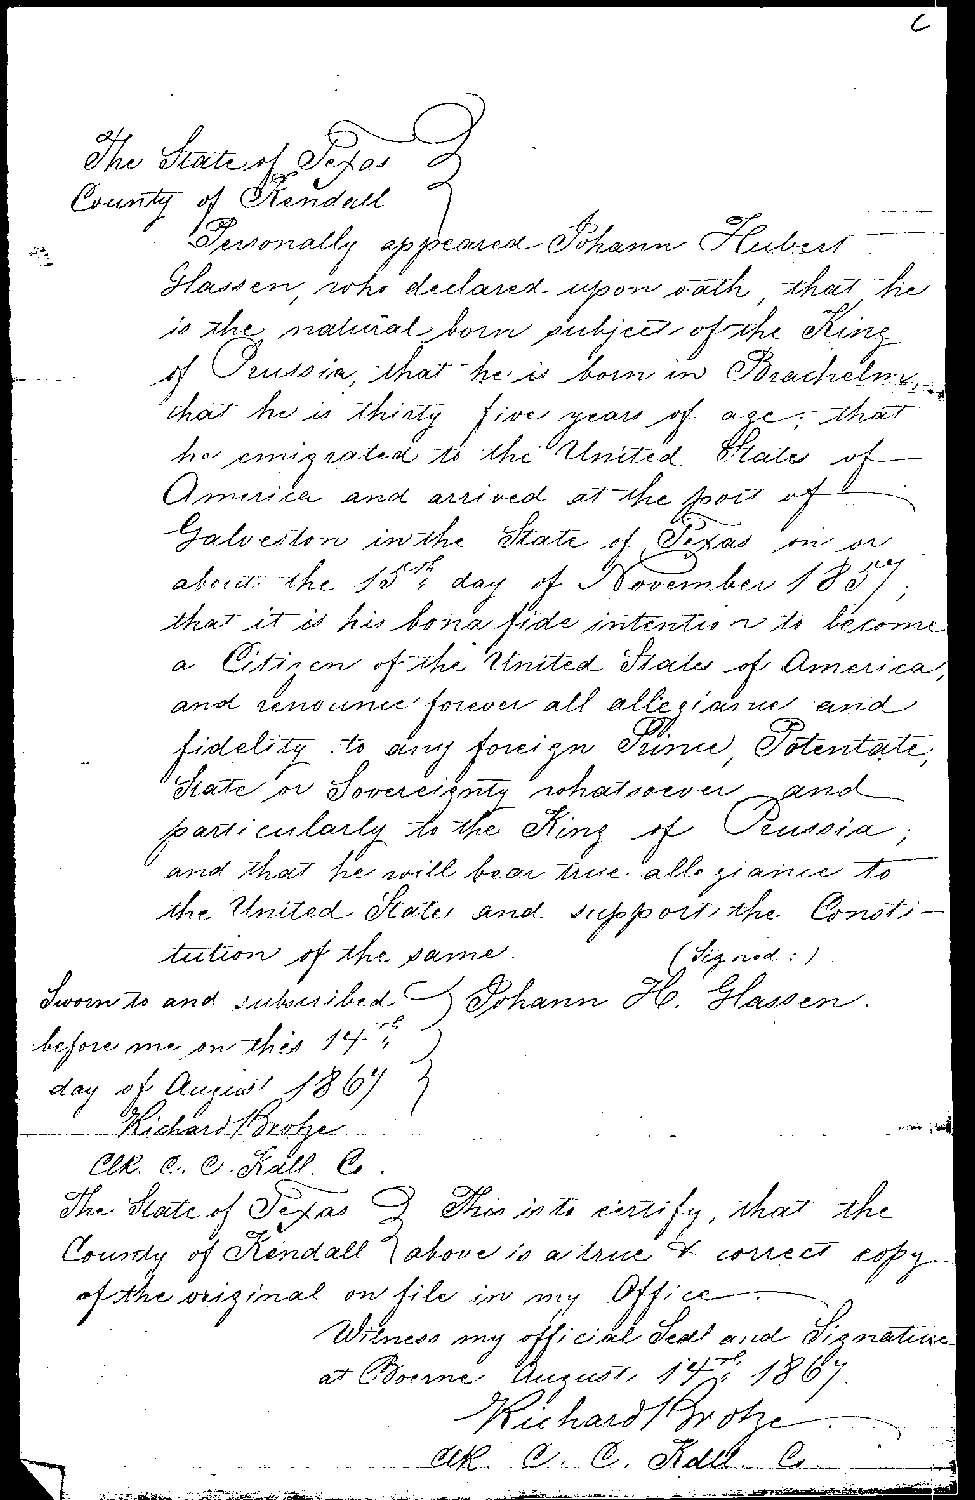 The State of Texas
County of Kendall
Personally appeared Johann Hubert
Glassen, who declared upon oath, that he
is the natural born subject of the King
of Prussia, that he is born in
that he is thirty five years of age; that
he emigrated to the United States of
America and arrived at the port of
Galveston in the State of Texas on or
about the 15th day of November 1857;
that it is his bona fide intention to become
a Citizen of the United States of America,
and renounce forever all allegiance and
fidelity to any foreign Prince, Potentate,
State or Sovereignty whatsoever and
particularly to the King of Prussia;
and that he will bear true allegiance to
the United States and support the Consti-
tution of the same. (Signed:)
Sworn to and subscribed Johann H. Glassen.
before me on this 14th
day of August 1867
Richard Brotze
Clk. C. C. Kdll. Co.
The State of Texas This is to certify, that the
County of Kendall above is a true & correct copy
of the original on file in my Office
Witness my official Seal and Signature
at Boerne August 14th 1867.
Richard Brotze
Clk. C. C. Kdll. Co.